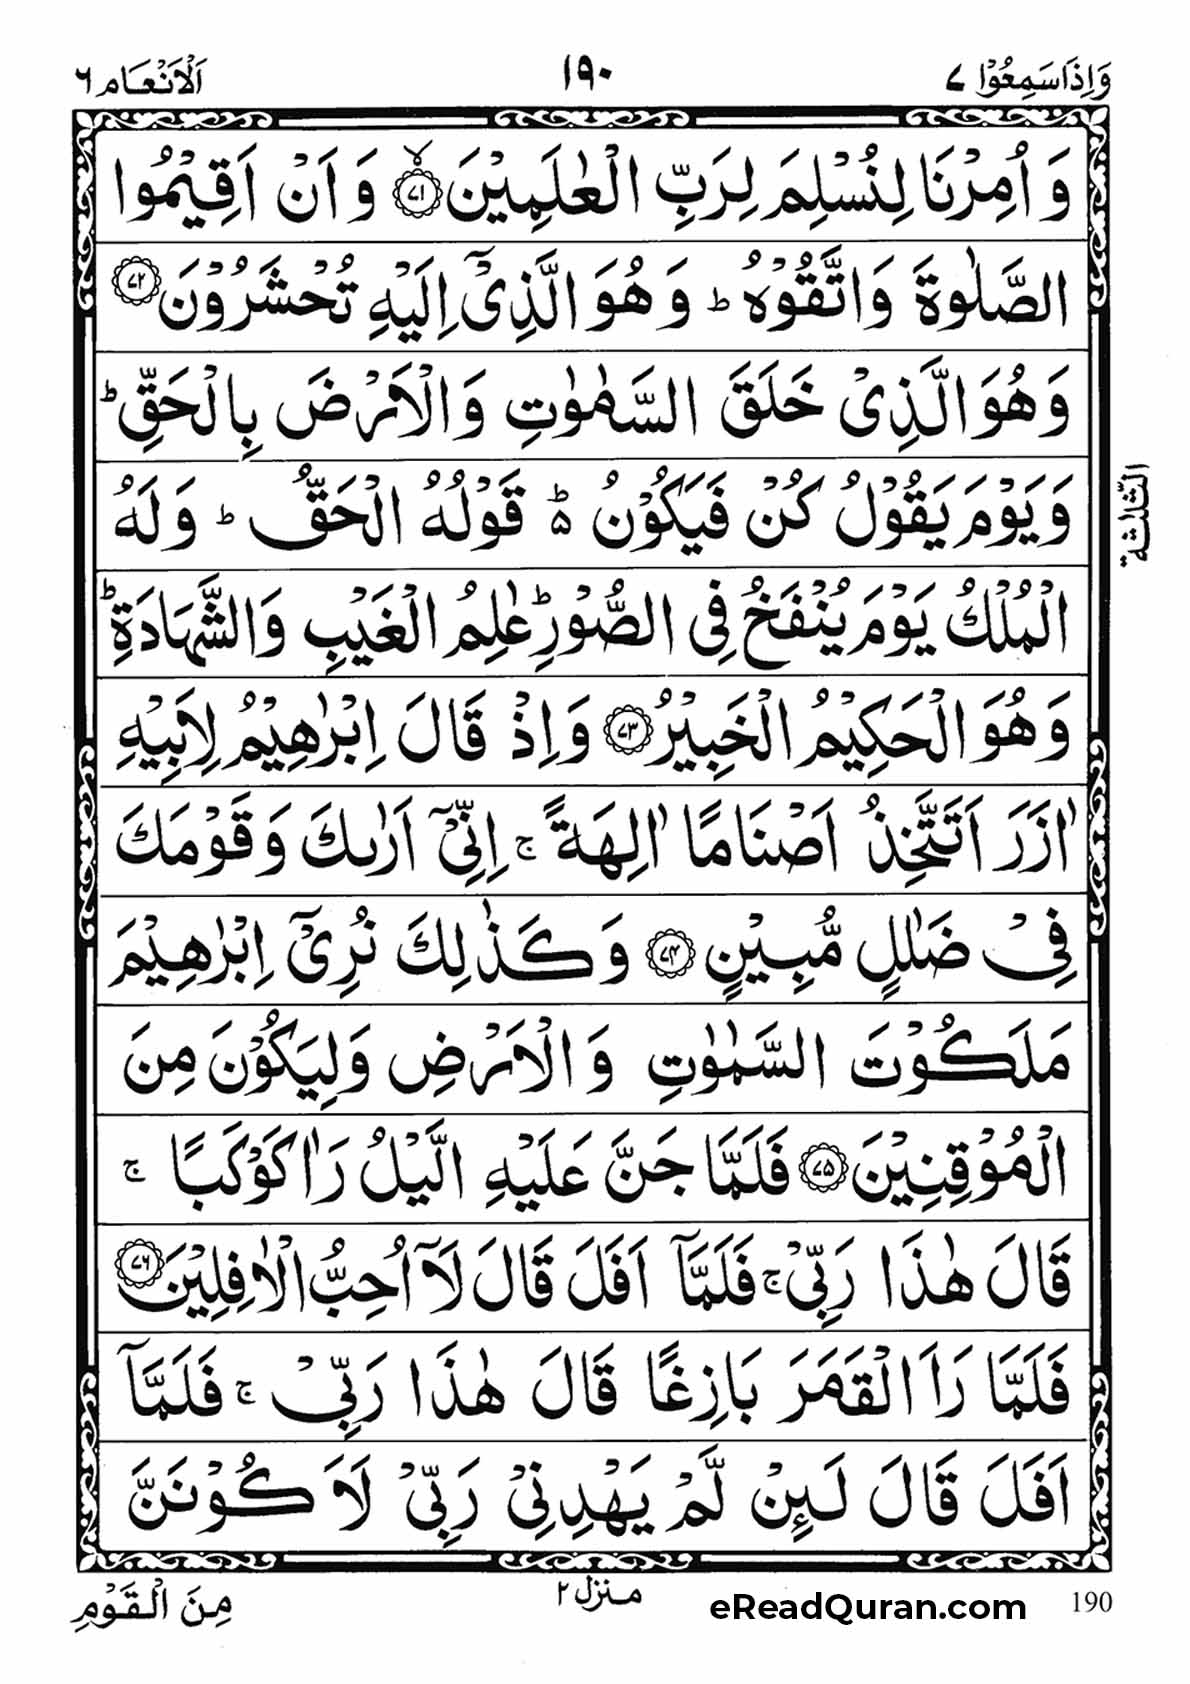 وَاِذَاسَمِعُوْا ٧ ١٩٠ اَلْاَنْعَام ٦
وَ اُمِرْنَا لِنُسْلِمَ لِرَبِّ الْعٰلَمِيْنَ ﴿٧١﴾ۙ وَ اَنْ اَقِيْمُوا
الصَّلٰوةَ وَاتَّقُوْهُ ؕ وَ هُوَ الَّذِیْۤ اِلَيْهِ تُحْشَرُوْنَ ﴿٧٢﴾
وَ هُوَ الَّذِیْ خَلَقَ السَّمٰوٰتِ وَ الْاَرْضَ بِالْحَقِّ ؕ
وَ يَوْمَ يَقُوْلُ كُنْ فَيَكُوْنُ ۬ؕ قَوْلُهُ الْحَقُّ ؕ وَ لَهُ
الْمُلْكُ يَوْمَ يُنْفَخُ فِی الصُّوْرِ ؕ عٰلِمُ الْغَيْبِ وَالشَّهَادَةِ ؕ
وَ هُوَ الْحَكِيْمُ الْخَبِيْرُ ﴿٧٣﴾ وَ اِذْ قَالَ اِبْرٰهِيْمُ لِاَبِيْهِ
اٰزَرَ اَتَتَّخِذُ اَصْنَامًا اٰلِهَةً ۚ اِنِّیْۤ اَرٰىكَ وَ قَوْمَكَ
فِیْ ضَلٰلٍ مُّبِيْنٍ ﴿٧٤﴾ وَ كَذٰلِكَ نُرِیْۤ اِبْرٰهِيْمَ
مَلَكُوْتَ السَّمٰوٰتِ وَ الْاَرْضِ وَلِيَكُوْنَ مِنَ
الْمُوْقِنِيْنَ ﴿٧٥﴾ فَلَمَّا جَنَّ عَلَيْهِ الَّيْلُ رَاٰ كَوْكَبًا ۚ
قَالَ هٰذَا رَبِّیْ ۚ فَلَمَّاۤ اَفَلَ قَالَ لَاۤ اُحِبُّ الْاٰفِلِيْنَ ﴿٧٦﴾
فَلَمَّا رَاَ الْقَمَرَ بَازِغًا قَالَ هٰذَا رَبِّیْ ۚ فَلَمَّاۤ
اَفَلَ قَالَ لَئِنْ لَّمْ يَهْدِنِیْ رَبِّیْ لَاَكُوْنَنَّ
الثّلٰثة
مِنَ الْقَوْمِ
منزل ٢
eReadQuran.com
190